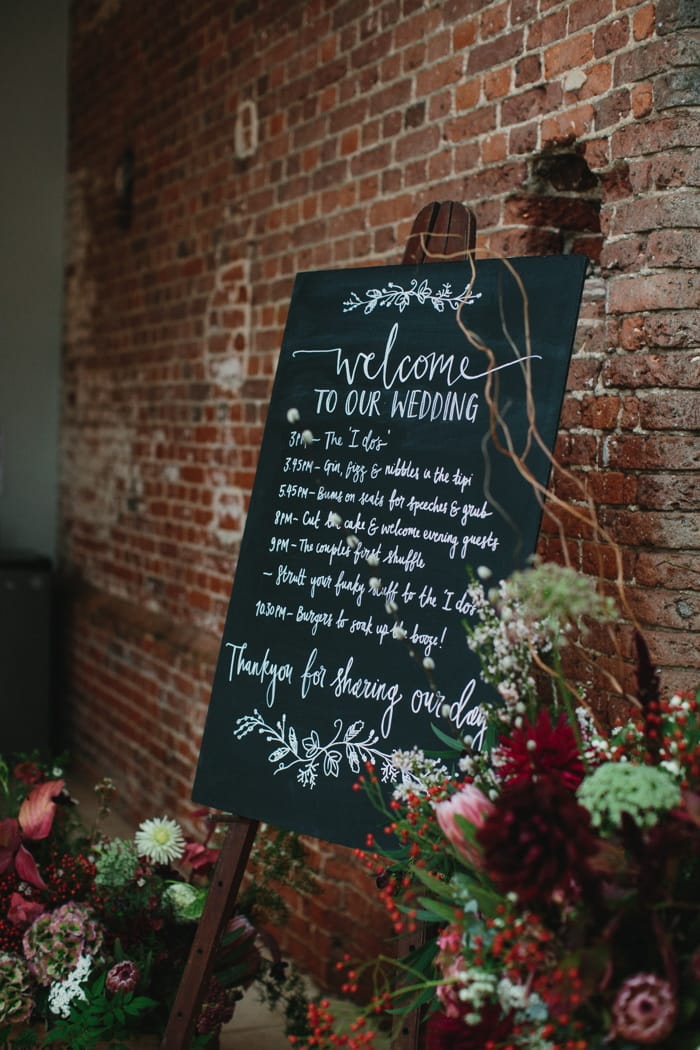 welcome
TO OUR WEDDING
3PM – The 'I do's'
3.45PM – Gin, fizz & nibbles in the tipi
5.45PM – Bums on seats for speeches & grub
8PM – Cut the cake & welcome evening guests
9PM – The couples first shuffle
– Strutt your funky stuff to the 'I do's
10.30PM – Burgers to soak up the booze!
Thankyou for sharing our day